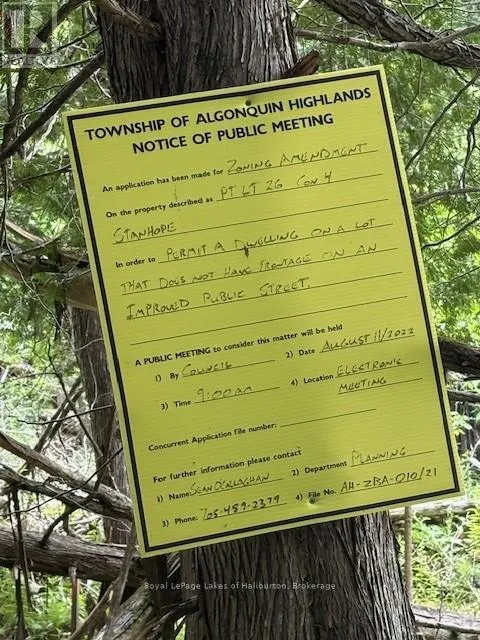 TOWNSHIP OF ALGONQUIN HIGHLANDS
NOTICE OF PUBLIC MEETING
An application has been made for ZONING AMENDMENT
On the property described as PT LT 26 CON 4
STANHOPE
In order to PERMIT A DWELLING ON A LOT
THAT DOES NOT HAVE FRONTAGE ON AN
IMPROVED PUBLIC STREET.
A PUBLIC MEETING to consider this matter will be held
1) By COUNCIL 2) Date AUGUST 11/2022
3) Time 9:00AM 4) Location ELECTRONIC
MEETING
Concurrent Application File number:
For further information please contact
1) Name SEAN O'CALLAGHAN 2) Department PLANNING
3) Phone: 705-489-2379 4) File No. AH-ZBA-010/21
Royal LePage Lakes of Haliburton, Brokerage